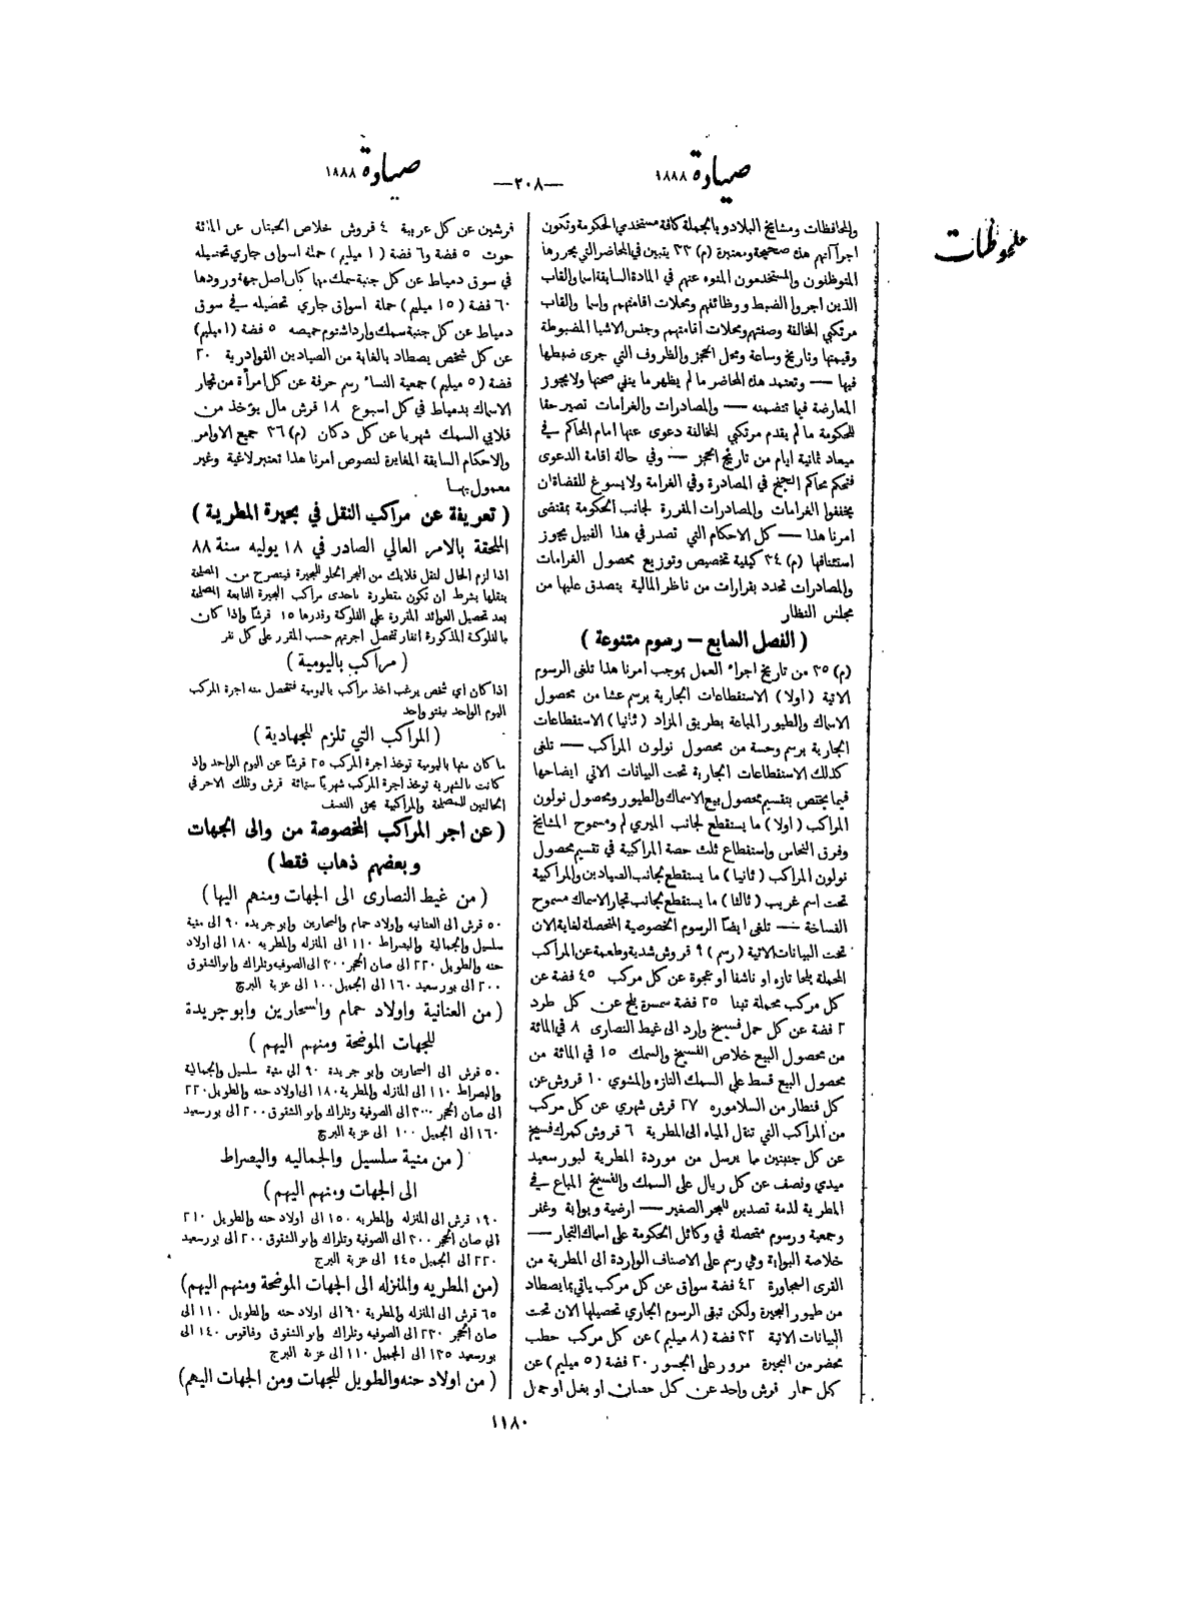 صيادة ١٨٨٨
—٢٠٨—
صيادة ١٨٨٨
ملحوظات
والمحافظات ومشايخ البلاد وبالجملة كافة مستخدمي الحكومة وتكون
اجرآآتهم هذه صحيحة ومعتبرة (م) ٣٣ يتبين في المحاضر التي يحررها
المتوظفون والمستخدمون المنوه عنهم في المادة السابقة اسما والقاب
الذين اجروا الضبط ووظائفهم ومحلات اقامتهم واسما والقاب
مرتكبي المخالفة وصفتهم ومحلات اقامتهم وجنس الاشيا المضبوطة
وقيمتها وتاريخ وساعة ومحل الحجز والظروف التي جرى ضبطها
فيها — وتعتمد هذه المحاضر ما لم يظهر ما ينفي صحتها ولا يجوز
المعارضة فيما تتضمنه — والمصادرات والغرامات تصير حقا
للحكومة ما لم يقدم مرتكبي المخالفة دعوى عنها امام المحاكم في
ميعاد ثمانية ايام من تاريخ الحجز — وفي حالة اقامة الدعوى
فتحكم محاكم الجنح في المصادرة وفي الغرامة ولا يسوغ للقضاة ان
يخففوا الغرامات والمصادرات المقررة لجانب الحكومة بمقتضى
امرنا هذا — كل الاحكام التي تصدر في هذا القبيل يجوز
استئنافها (م) ٣٤ كيفية تخصيص وتوزيع محصول الغرامات
والمصادرات تحدد بقرارات من ناظر المالية يتصدق عليها من
مجلس النظار
( الفصل السابع — رسوم متنوعة )
(م) ٣٥ من تاريخ اجراء العمل بموجب امرنا هذا تلغى الرسوم
الاتية ( اولا ) الاستقطاعات الجارية برسم عشا من محصول
الاسماك والطيور المباعة بطريق المزاد ( ثانيا ) الاستقطاعات
الجارية برسم وحسة من محصول نولون المراكب — تلغى
كذلك الاستقطاعات الجارية تحت البيانات الاتي ايضاحها
فيما يختص بتقسيم محصول بيع الاسماك والطيور ومحصول نولون
المراكب ( اولا ) ما يستقطع لجانب الميري لم ومسموح المشايخ
وفرق النحاس واستقطاع ثلث حصة المراكبية في تقسيم محصول
نولون المراكب ( ثانيا ) ما يستقطع بجانب الصيادين والمراكبية
تحت اسم غريب ( ثالثا ) ما يستقطع بجانب تجار الاسماك مسموح
الفساخة — تلغى ايضا الرسوم الخصوصية المتحصلة لغاية الان
تحت البيانات الاتية ( رسم ) ٩ قروش شدية وطعمة عن المراكب
المحملة بلحا تازه او ناشفا او عجوة عن كل مركب ٤٥ فضة عن
كل مركب محملة تبنا ٢٥ فضة سمسرة بلح عن كل طرد
٢ فضة عن كل حمل فسيخ وارد الى غيط النصارى ٨ في المائة
من محصول البيع خلاص الفسيخ والسمك ١٥ في المائة من
محصول البيع قسط على السمك التازه والمشوي ١٠ قروش عن
كل قنطار من السلاموره ٢٧ قرش شهري عن كل مركب
من المراكب التي تنقل المياه الى المطرية ٦ قروش كمرك فسيخ
عن كل جنبتين مما يرسل من موردة المطرية لبور سعيد
ميدي ونصف عن كل ريال على السمك والفسيخ المباع في
المطرية لذمة تصديره للبحر الصغير — ارضية وبوابة وغفر
وجمعية ورسوم متحصلة في وكائل الحكومة على اسماك التجار —
خلاصة البوابة وهي رسم على الاصناف الواردة الى المطرية من
القرى المجاورة ٤٢ فضة سواق عن كل مركب ياتي بما يصطاد
من طيور البحيرة ولكن تبقى الرسوم الجاري تحصيلها الان تحت
البيانات الاتية ٢٢ فضة ( ٨ ميليم ) عن كل مركب حطب
يحضر من البحيرة مرور على الجسور ٢٠ فضة ( ٥ ميليم ) عن
كل حمار قرش واحد عن كل حصان او بغل او جمل
قرشين عن كل عربية ٤ قروش خلاص الحيتان عن المائة
حوت ٥ فضة و٦ فضة ( ١ ميليم ) حملة اسواق جاري تحصيله
في سوق دمياط عن كل جنبة سمك مهما كان اصل جهة ورودها
٦٠ فضة ( ١٥ ميليم ) حملة اسواق جاري تحصيله في سوق
دمياط عن كل جنبة سمك وارداشتوم خميصه ٥ فضة ( ١ ميليم )
عن كل شخص يصطاد بالغابة من الصيادين القوادرية ٢٠
فضة ( ٥ ميليم ) جمعية النساء رسم حرفة عن كل امرأة من تجار
الاسماك بدمياط في كل اسبوع ١٨ قرش مال يؤخذ من
قلايي السمك شهريا عن كل دكان (م) ٣٦ جميع الاوامر
والاحكام السابقة المغايرة لنصوص امرنا هذا تعتبر لاغية وغير
معمول بها
( تعريفة عن مراكب النقل في بحيرة المطرية )
الملحقة بالامر العالي الصادر في ١٨ يوليه سنة ٨٨
اذا لزم الحال لنقل فلايك من البحر الحلو للبحيرة فيتصرح من المصلحة
بنقلها بشرط ان تكون مقطورة باحدى مراكب البحيرة التابعة للمصلحة
بعد تحصيل العوائد المقررة على الفلوكة وقدرها ١٥ قرشا واذا كان
بالفلوكة المذكورة انفار تتحصل اجرتهم حسب المقرر على كل نفر
( مراكب باليومية )
اذا كان اي شخص يرغب اخذ مراكب باليومية فتتحصل منه اجرة المركب
اليوم الواحد بنتو واحد
( المراكب التي تلزم للجهادية )
ما كان منها باليومية توخذ اجرة المركب ٢٥ قرشا عن اليوم الواحد واذ
كانت بالشهرية توخذ اجرة المركب شهريا ستمائة قرش وتلك الاجر في
الحالتين للمصلحة والمراكبية بحق النصف
( عن اجر المراكب المخصوصة من والى الجهات
وبعضهم ذهاب فقط )
( من غيط النصارى الى الجهات ومنهم اليها )
٥٠ قرش الى العنانيه واولاد حمام والسحارين وابو جريده ٩٠ الى منية
سلسيل والجمالية والبصراط ١١٠ الى المنزله والمطريه ١٨٠ الى اولاد
حنه والطويل ٢٢٠ الى صان الحجر ٣٠٠ الى الصوفيه وتلراك وابو الشقوق
٢٠٠ الى بور سعيد ١٦٠ الى الجميل ١٠٠ الى عزبة البرج
( من العنانية واولاد حمام والسحارين وابو جريدة
للجهات الموضحة ومنهم اليهم )
٥٠ قرش الى السحارين وابو جريدة ٩٠ الى منية سلسيل والجمالية
والبصراط ١١٠ الى المنزله والمطرية ١٨٠ الى اولاد حنه والطويل ٢٢٠
الى صان الحجر ٣٠٠ الى الصوفية وتلراك وابو الشقوق ٢٠٠ الى بور سعيد
١٦٠ الى الجميل ١٠٠ الى عزبة البرج
( من منية سلسيل والجماليه والبصراط
الى الجهات ومنهم اليهم )
١٩٠ قرش الى المنزله والمطريه ١٥٠ الى اولاد حنه والطويل ٢١٠
الى صان الحجر ٣٠٠ الى الصوفية وتلراك وابو الشقوق ٢٠٠ الى بور سعيد
٢٢٠ الى الجميل ١٤٥ الى عزبة البرج
( من المطريه والمنزله الى الجهات الموضحة ومنهم اليهم )
٦٥ قرش الى المنزله والمطرية ٩٠ الى اولاد حنه والطويل ١١٠ الى
صان الحجر ٢٣٠ الى الصوفيه وتلراك وابو الشقوق وفاقوس ١٤٠ الى
بور سعيد ١٣٥ الى الجميل ١١٠ الى عزبة البرج
( من اولاد حنه والطويل للجهات ومن الجهات اليهم )
١١٨٠